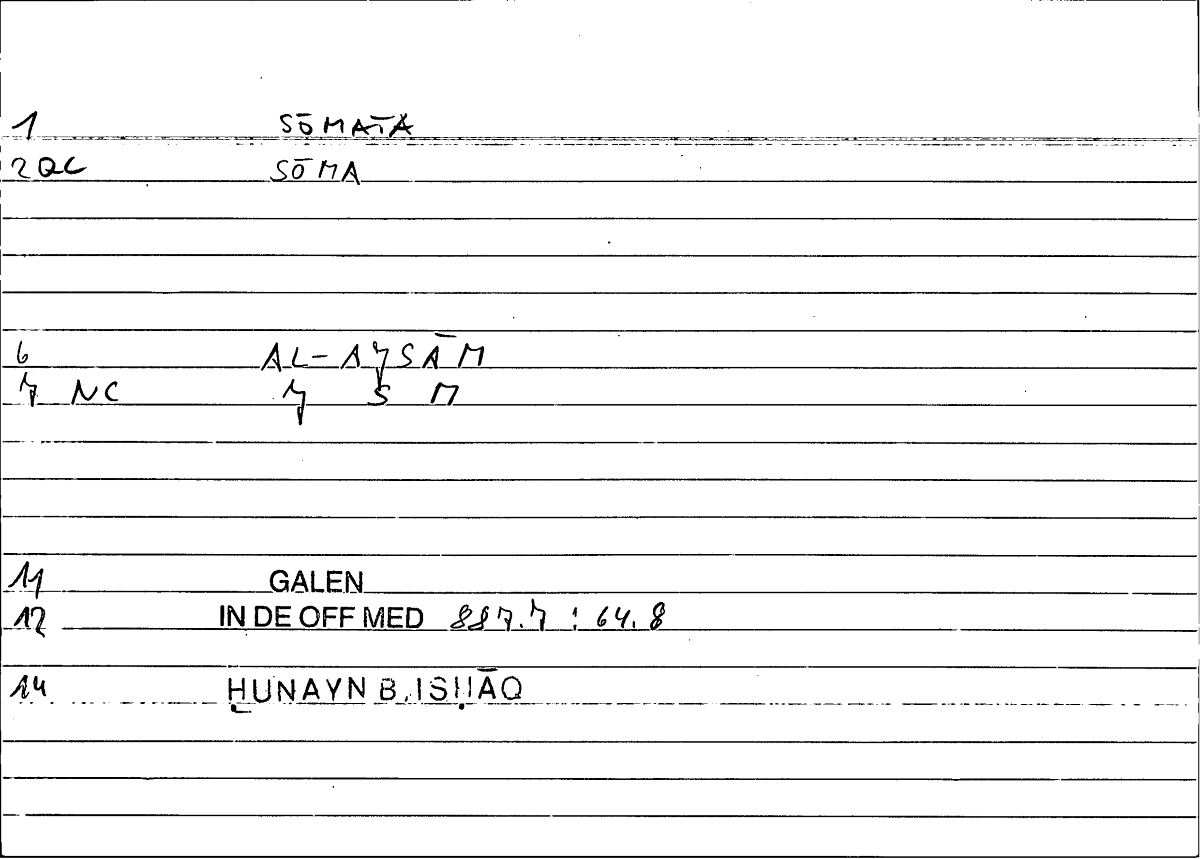 1 SŌMATA
2 QC SŌMA
6 AL-AJSĀM
7 NC J S M
11 GALEN
12 IN DE OFF MED 887.7 : 64.8
14 ḤUNAYN B. ISḤĀQ